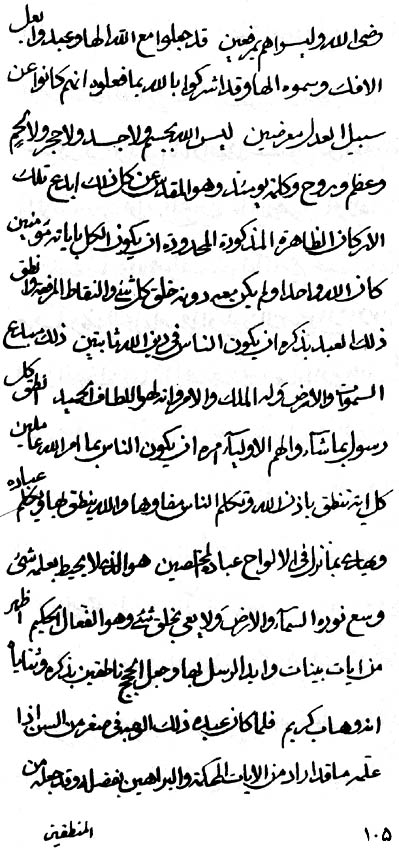 رضى الله وليسوا هم بمرضيين قد جعلوا مع الله الها وعبدوا بعل
الافك وسموه الها وقد اشركوا بالله بما فعلوه انهم كانوا عن
سبيل العدل معرضين ليس الله بجسم ولا جسد ولا حجر ولا لحم
وعظم وبروح وكلمة وهو المقدس عن كل ذلك ابدع تلك
الاركان الظاهرة المذكورة المحدودة ان يكون الكل باياته مؤمنين
كان الله واحدا ولم يكن معه دونه خلق كل شئ والنقاط انطق
ذلك العبد بذكره ان يكون الناس فى دين الله ثابتين ذلك مبدع
السموات والارض وله الملك والامر وانه لهو اللطاف الحميد انطق كل
رسول بما شاء والهم الاولياء امره ان يكون الناس بما امر الله عاملين
كل اية تنطق باذن الله وتكلم الناس والله ينطق بها عباده
بما نزل فى الالواح عباده المخلصين هو الذى لا يحيط بعلمه شئ
وسع نوره السماء والارض ولا يعى بخلق شئ وهو الفعال الحكيم اظهر
من ايات بينات وايد الرسل بها وجعل الحجج ناطقين بذكره وثنائه
انه وهاب كريم فلما كان عبده ذلك الوجه فى صغر من السن اذا
علمه ما قد اراد من الايات المحكمة والبراهين بفضله وقد جعله من
١٠٥ المنطقين